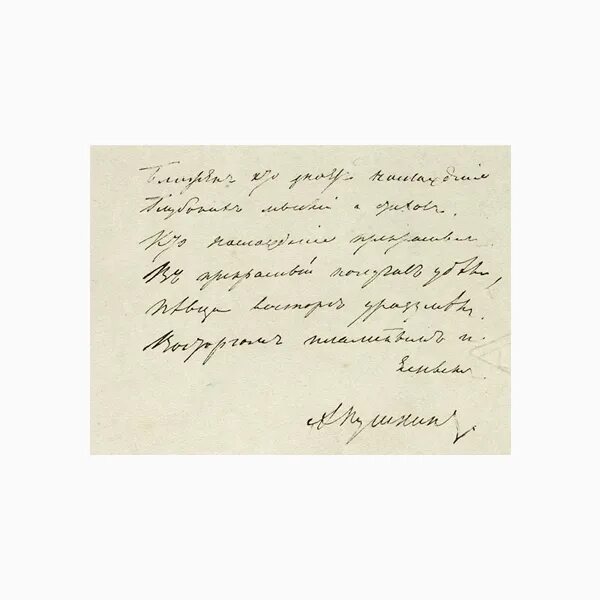 Блаженъ кто знаетъ наслажденіе
Глубокихъ мыслей и стиховъ.
Кто наслажденіе прекраснымъ
Въ прекрасный получилъ удѣлъ,
Пѣвца восторгъ уразумѣлъ
Восторгомъ пламеннымъ и
яснымъ.
АПушкинъ.